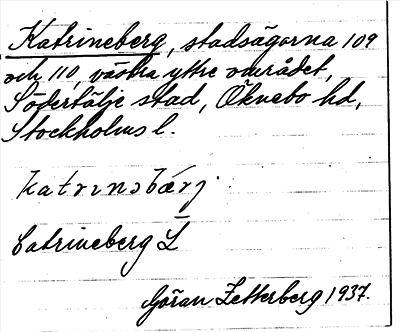 Katrineberg, stadsägorna 109
och 110, västra yttre området,
Södertälje stad, Öknebo hd,
Stockholms l.
katrɩnəbærj
Catrineberg L
Göran Zetterberg 1937.